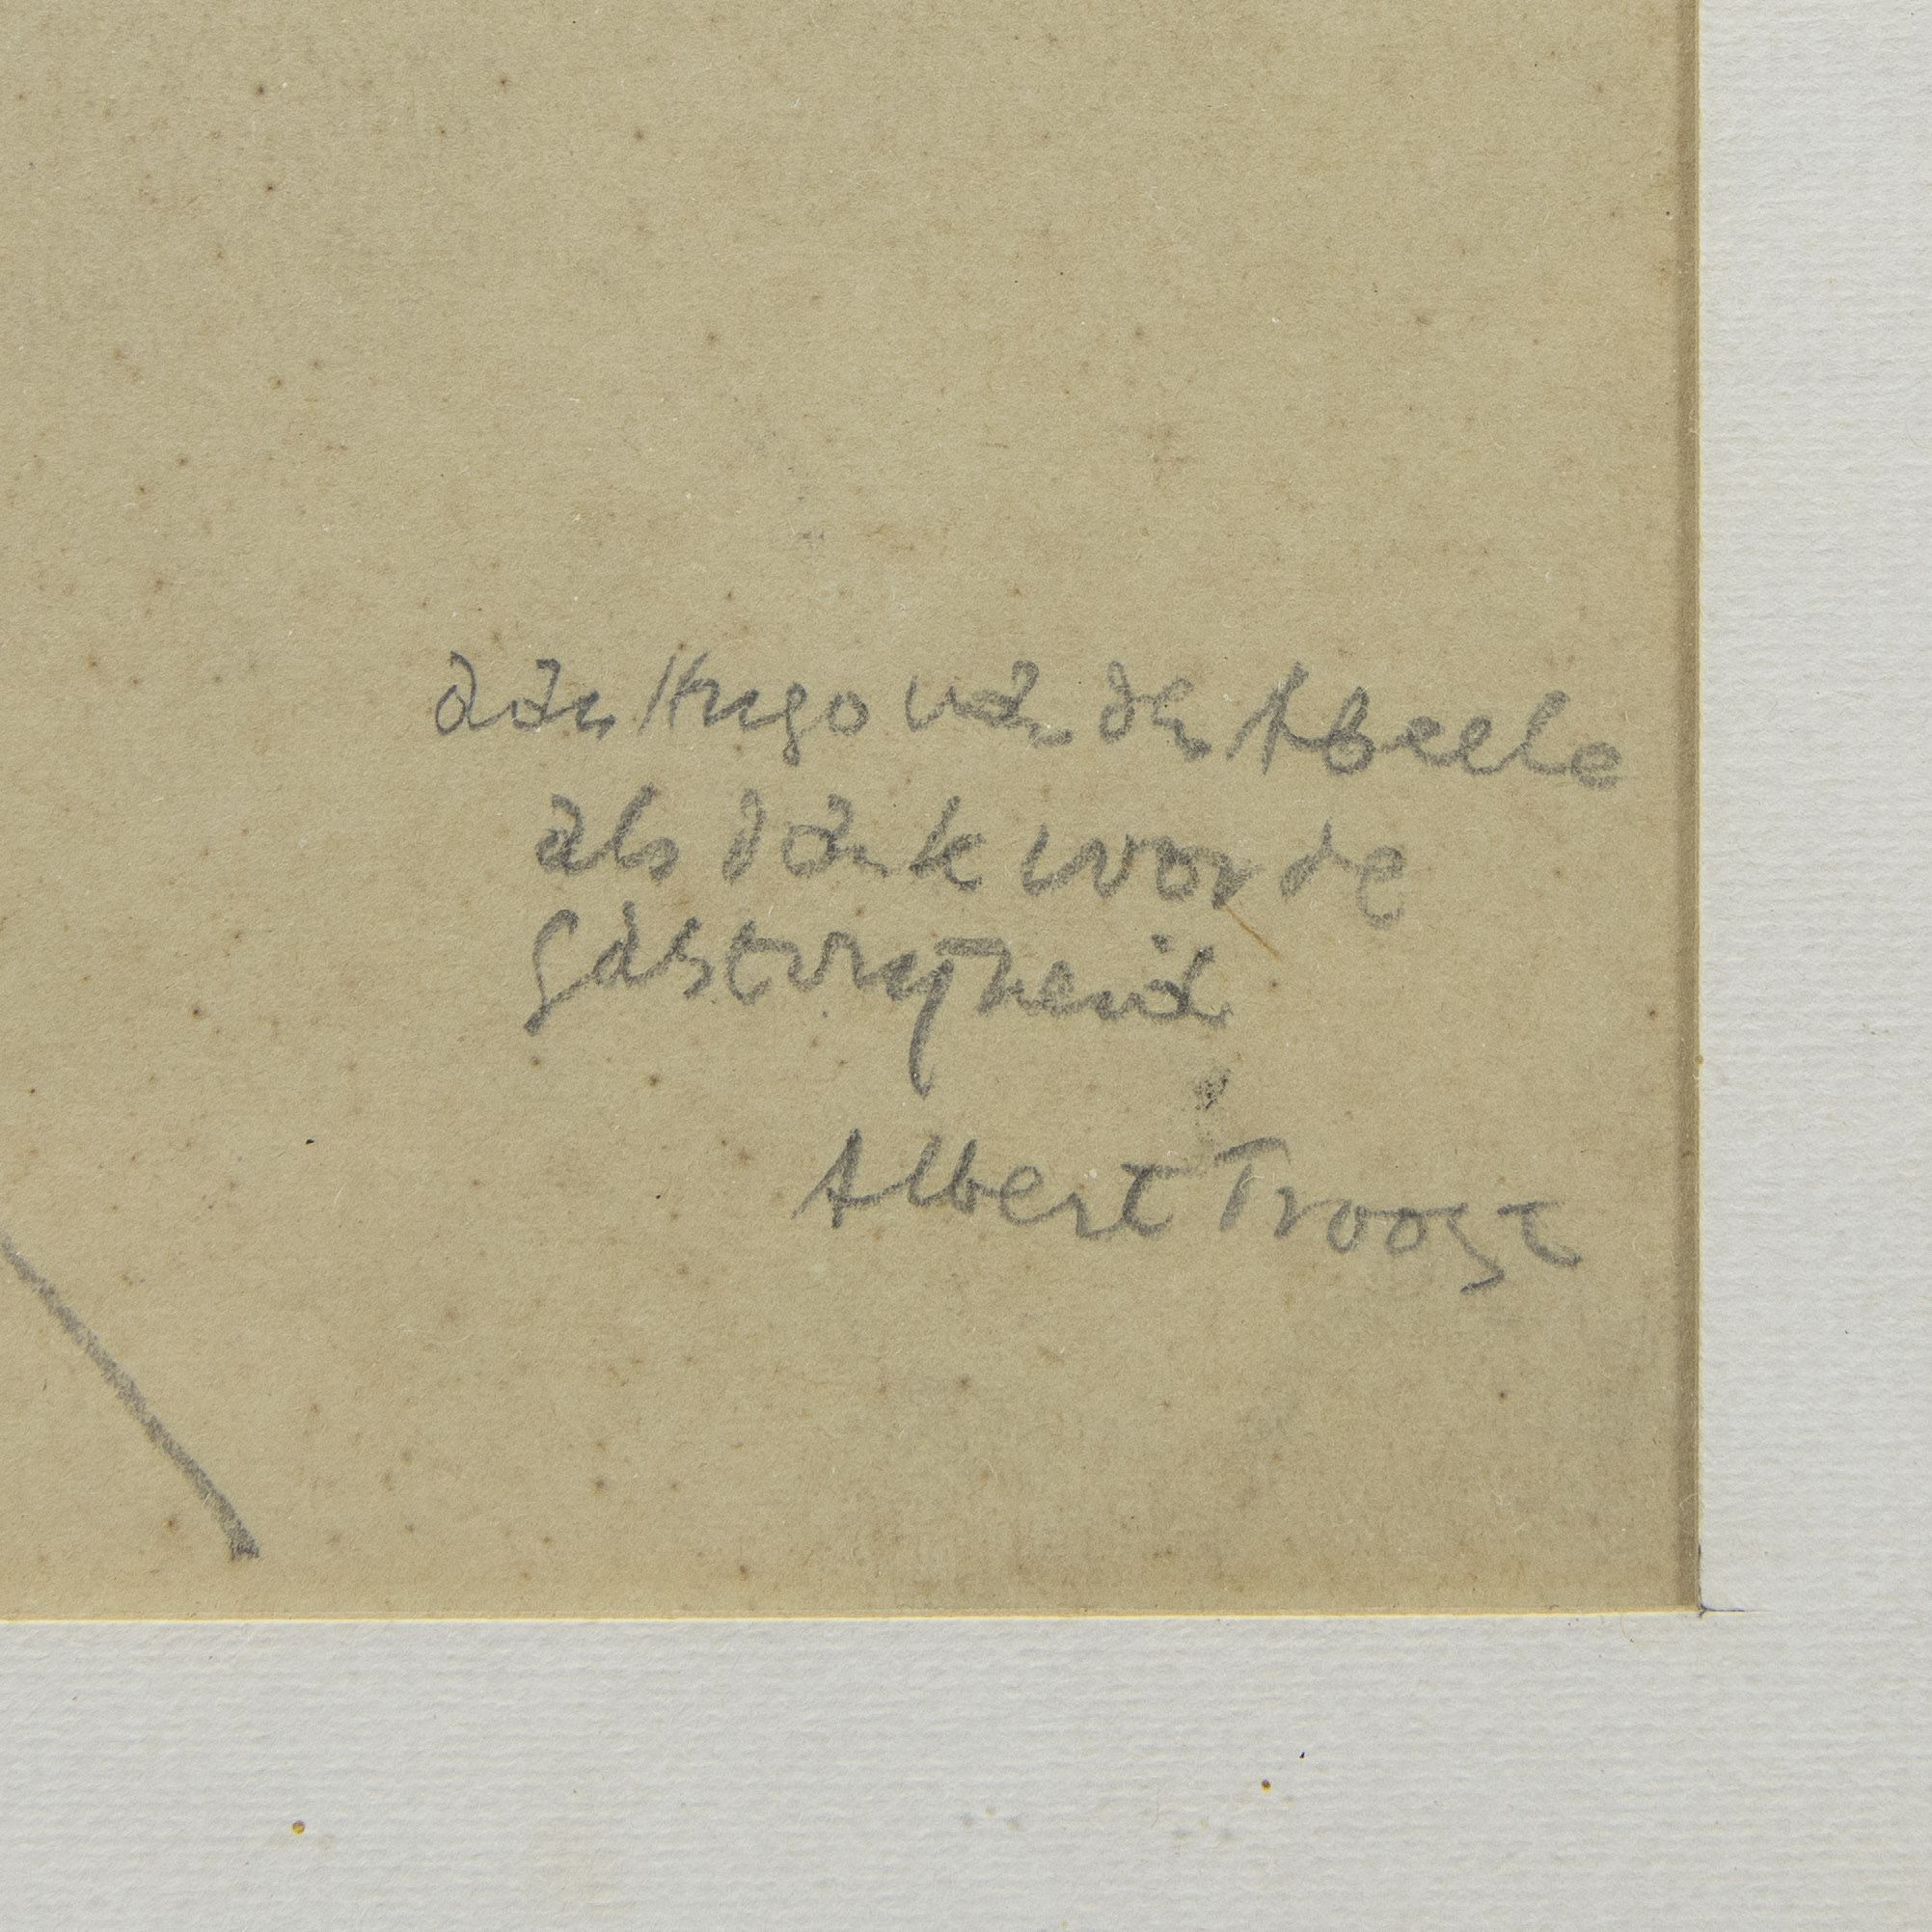 aan Hugo van den Abeele
als dank voor de
gastvrijheid
Albert Troost